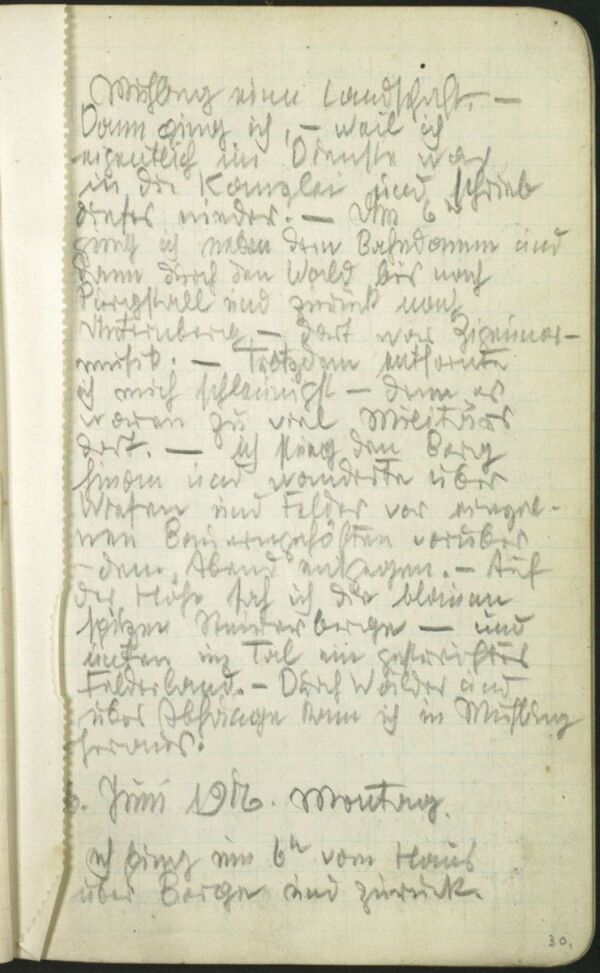 Mühling eine Landschaft. —
Dann ging ich, — weil ich
eigentlich im Dienste war
in die Kanzlei und schrieb
dieses nieder. — Um 6ʰ
ging ich neben dem Bahndamm und
dann durch den Wald bis nach
Purgstall und zurück nach
— dort war Zigeuner-
musik. — Trotzdem entfernte
ich mich schleunigst — denn es
waren zu viel Militärs
dort. — Ich stieg den Berg
hinan und wanderte über
Wiesen und Felder vor einzel-
nen Bauerngehöften vorüber
– dem Abend entgegen. — Auf
der Höhe sah ich die blauen
spitzen Steirerberge — und
unten im Tal ein
Felderland. – Durch Wälder und
über Abhänge kam ich in Mühling
heraus.
Juni 1916. Montag.
Ich ging um 6ʰ vom Haus
über Berge und zurück.
30.